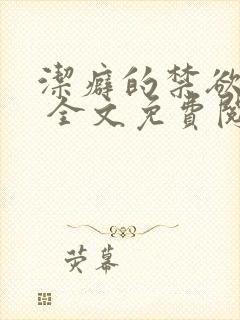 潔癖的禁欲
全文免費閱
荧幕